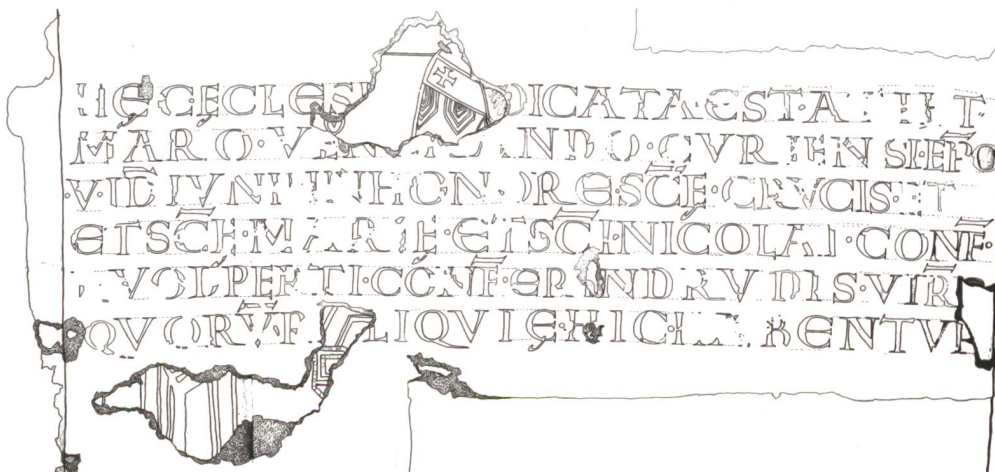 HEC·ECLESI DICATA·EST·A
MARO·VENERANDO·CVRIENSI·EPO
·V·ID IVNII IN HONORE·SCE·CRVCIS·ET
ET SCE·MARIE·ET SCI·NICOLAI·CONF·
VOLPERTI·CONF· VIR
QVORV RELIQVIE·HIC·HABENTVR